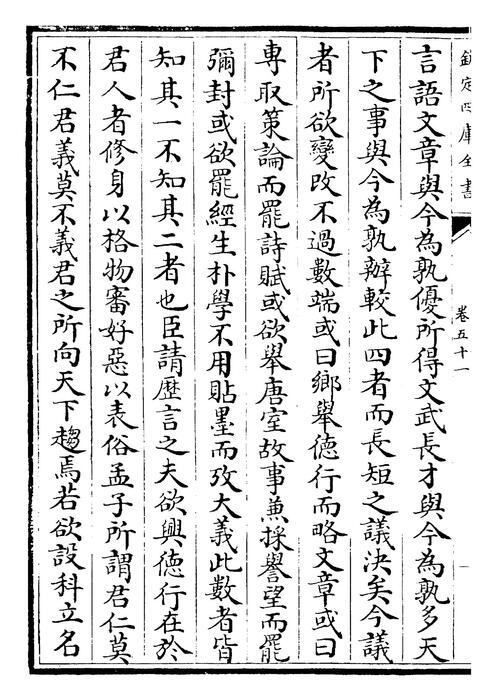 欽定四庫全書
卷五十一
言語文章與今為孰優所得文武長才與今為孰多天
下之事與今為孰辦較此四者而長短之議決矣今議
者所欲變改不過數端或曰鄉舉德行而略文章或曰
專取策論而罷詩賦或欲舉唐室故事兼採譽望而罷
彌封或欲罷經生朴學不用貼墨而攷大義此數者皆
知其一不知其二者也臣請歷言之夫欲興德行在於
君人者修身以格物審好惡以表俗孟子所謂君仁莫
不仁君義莫不義君之所向天下趨焉若欲設科立名